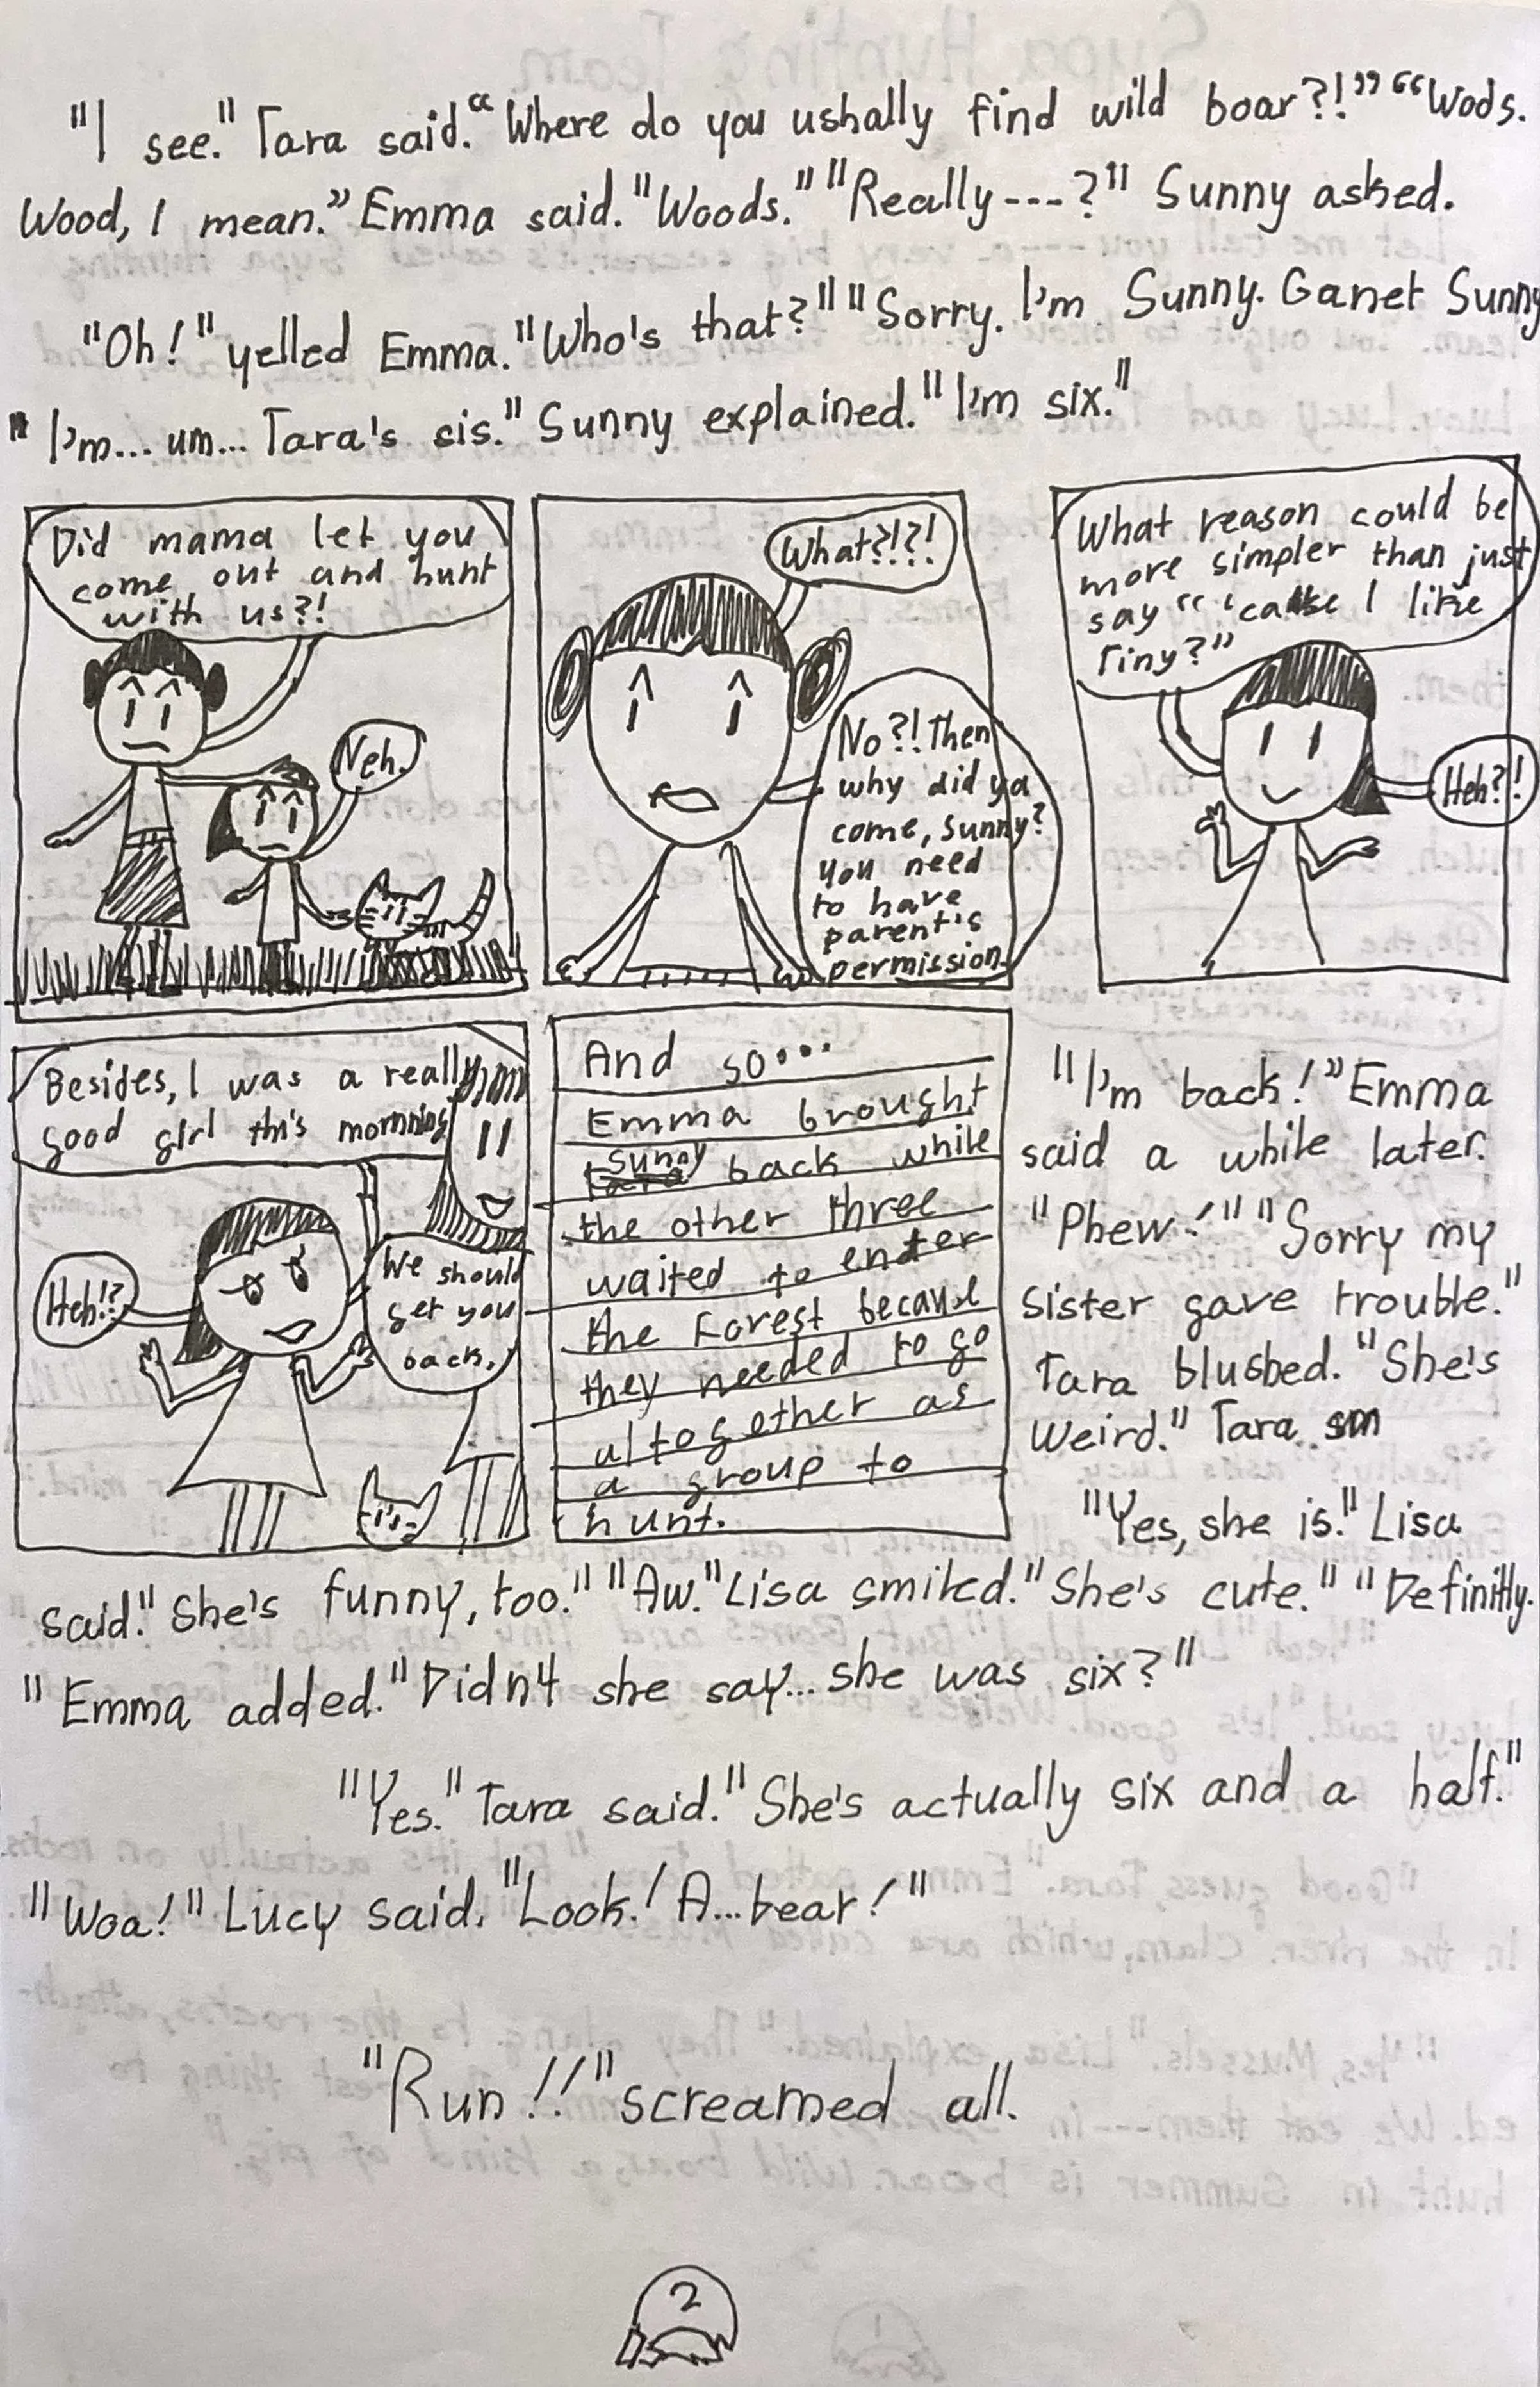 "I see." Tara said. "Where do you ushally find wild boar?!" "Wods.
Wood, I mean." Emma said. "Woods." "Really---?" Sunny asked.
"Oh!" yelled Emma. "Who's that?" "Sorry. I'm Sunny. Ganet Sunny
" I'm... um... Tara's sis." Sunny explained. "I'm six."
Did mama let you
come out and hunt
with us?!
Neh.
What?!?!
No?! Then
why did ya
come, Sunny?
You need
to have
parent's
permission.
What reason could be
more simpler than just
say "'cause I like
Tiny?"
Heh?!
Besides, I was a really
good girl this morning
Heh!?
We should
get you
back.
And so...
Emma brought
Sunny back while
the other three
waited to enter
the Forest because
they needed to go
altogether as
a group to
hunt.
"I'm back!" Emma
said a while later.
"Phew!" "Sorry my
sister gave trouble."
Tara blushed. "She's
weird." Tara sm
"Yes, she is." Lisa
said. "She's funny, too." "Aw." Lisa smiled. "She's cute." "Definitly.
" Emma added. "Didn't she say... she was six?"
"Yes." Tara said. "She's actually six and a half."
"Woa!" Lucy said. "Look! A... bear!"
"Run!!" screamed all.
2